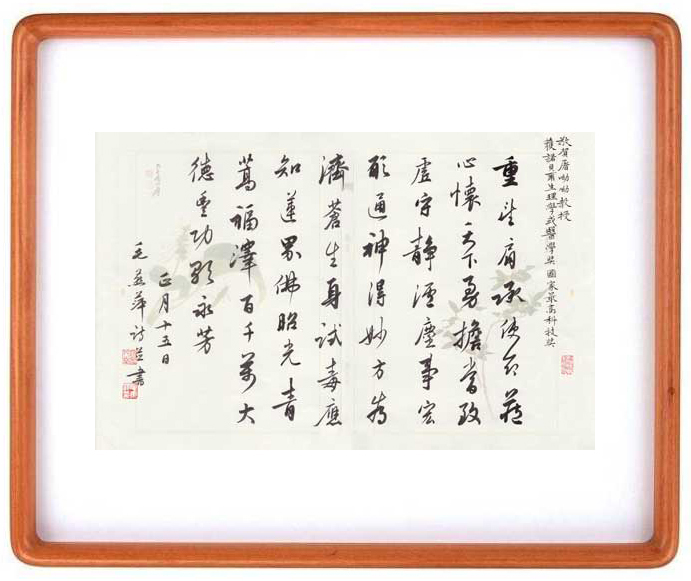 敬賀屠呦呦教授
獲諾貝爾生理學或醫學獎國家最高科技獎
重望肩承使命藏
心懷天下勇擔當致
虛守静湮塵事宏
願通神得妙方為
濟蒼生身試毒應
知蓮界佛昭光青
蒿福澤百千萬大
德豐功永芳
正月十五日
毛萍詩並書